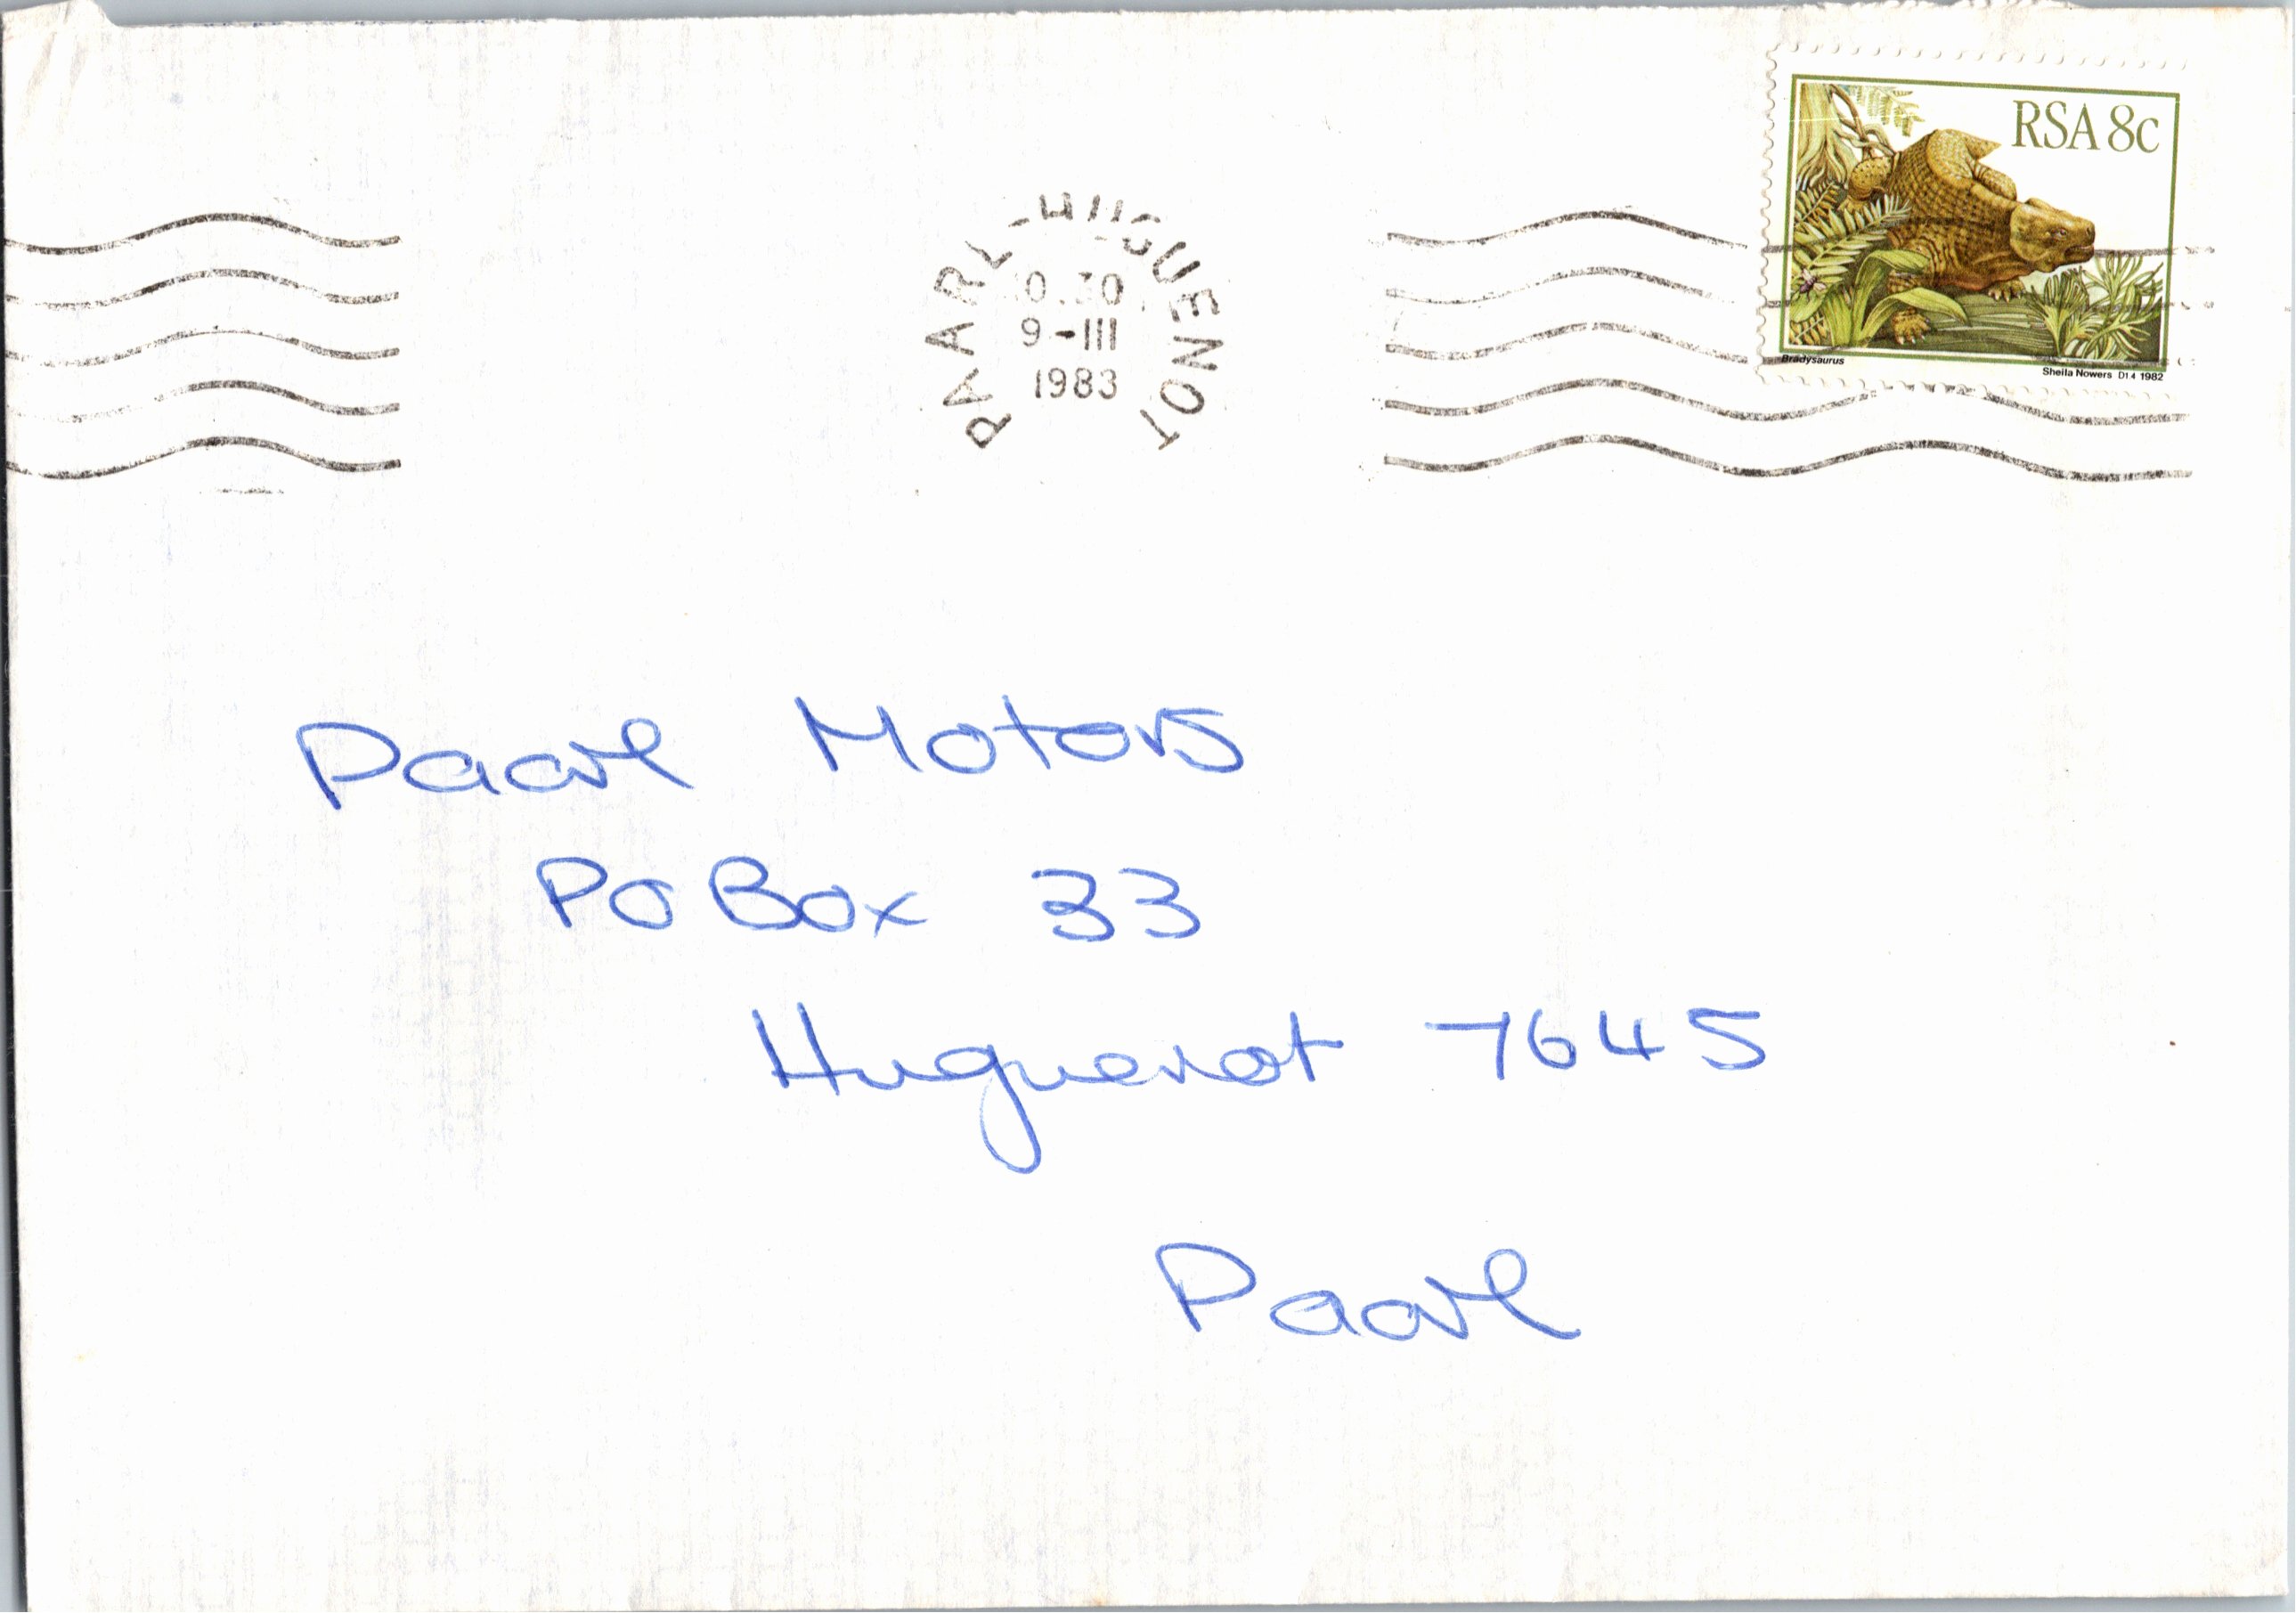 RSA 8c
Bradysaurus
Sheila Nowers D14 1982
PAARL-HUGUENOT
9-III
1983
Paarl Motors
PO Box 33
Huguenot 7645
Paarl